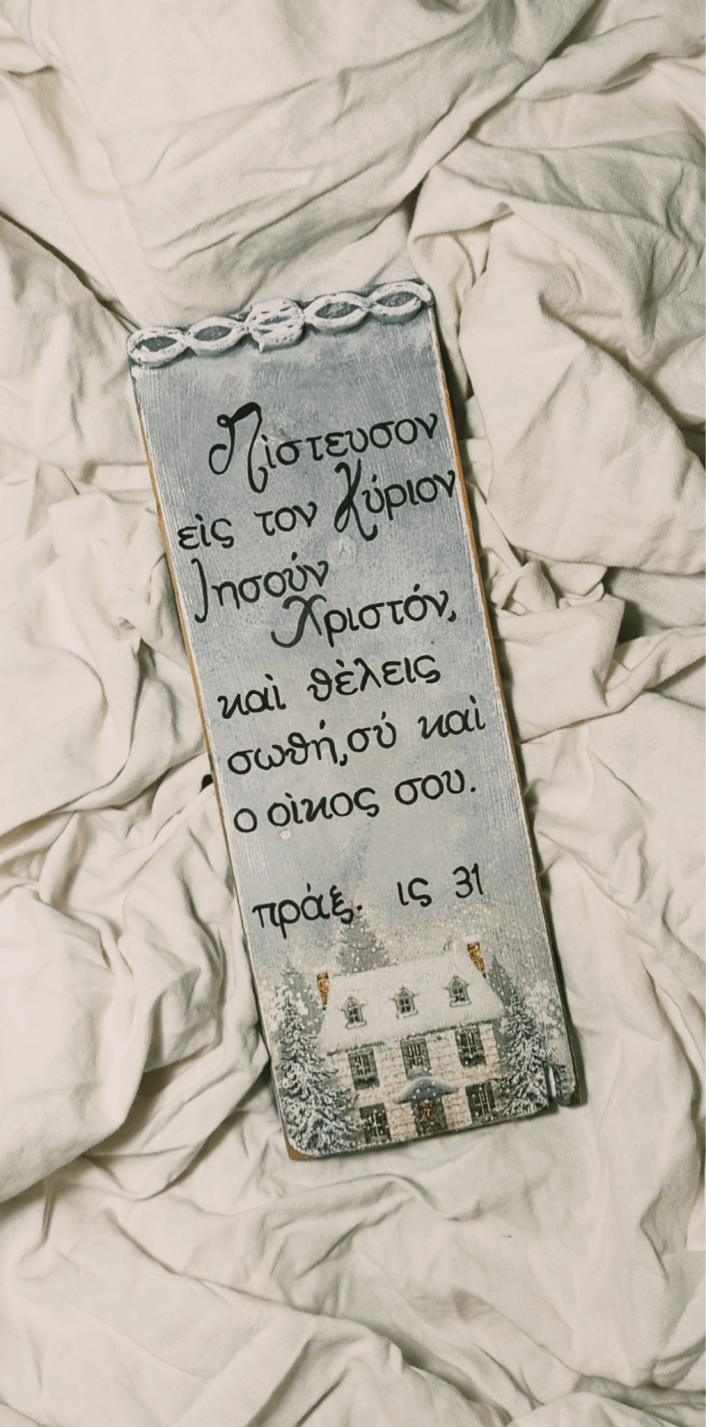 Πίστευσον
εὶς τον Κύριον
Ιησούν
Χριστόν,
καὶ θὲλεις
σωθή,σύ καὶ
ο οὶκος σου.
πράξ. ις 31